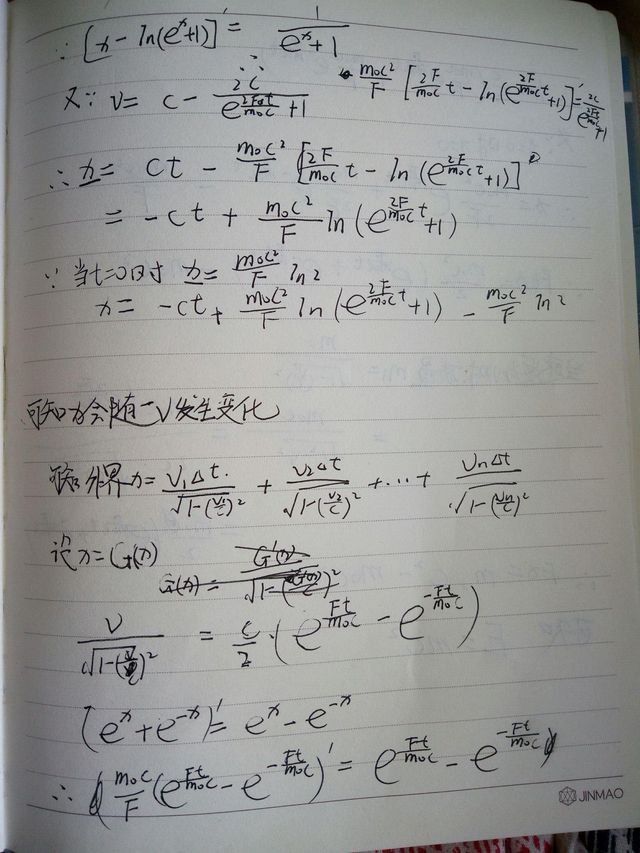 ∵ [x - ln(e^x+1)]' = 1/(e^x+1)
又∵ v = c - 2c/(e^(2Ft/m₀c)+1) ∴ m₀c²/F [2F/m₀c t - ln(e^(2F/m₀c t)+1)]' = 2c/(e^(2Ft/m₀c)+1)
∴ x = ct - m₀c²/F [2F/m₀c t - ln(e^(2F/m₀c t)+1)]
= -ct + m₀c²/F ln(e^(2F/m₀c t)+1)
∵ 当t=0时 x = m₀c²/F ln2
x = -ct + m₀c²/F ln(e^(2F/m₀c t)+1) - m₀c²/F ln2
可知 会随 v发生变化
外界x = v₁Δt/√(1-(v₁/c)²) + v₂Δt/√(1-(v₂/c)²) + ··· + vnΔt/√(1-(vn/c)²)
设x=G(x)
v/√(1-(v/c)²) = c/2 · (e^(Ft/m₀c) - e^(-Ft/m₀c))
(e^x + e^-x)' = e^x - e^-x
∴ (m₀c/F (e^(Ft/m₀c) - e^(-Ft/m₀c))' = e^(Ft/m₀c) - e^(-Ft/m₀c)
JINMAO